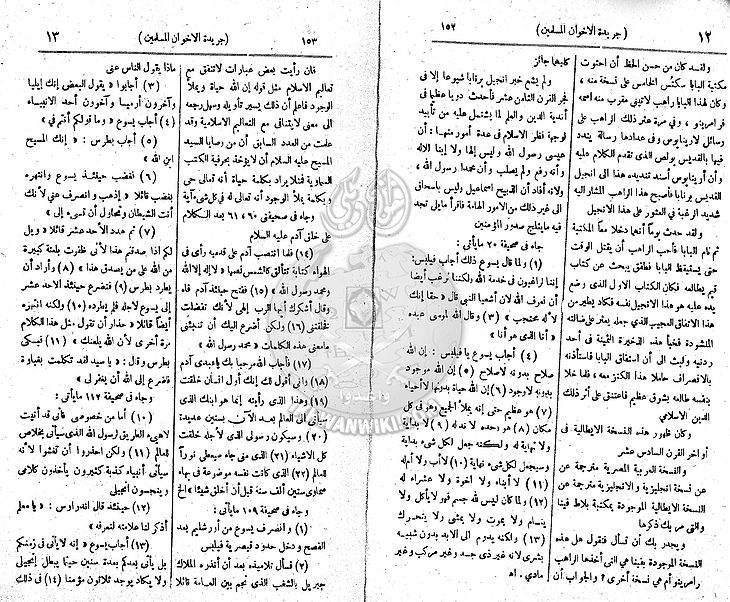 ١٢ (جريدة الاخوان المسلمين) ١٥٢
ولقد كان من حسن الحظ أن احتوت
مكتبة البابا سكتس الخامس على نسخة منه ،
وكان لهذا البابا راهب لاتينى مقرب منه اسمه
فرامرينو ، وفى مرة عثر ذلك الراهب على
رسائل لاريانوس وفى عدادها رسالة يندد
فيها بالقديس بولص الذى تقدم الكلام عليه
وأن أريانوس أسند تنديده هذا الى انجيل
القديس برنابا فأصبح هذا الراهب المشار اليه
شديد الرغبة فى العثور على هذا الانجيل
ولقد حدث يوما أنهما دخلا معا المكتبة
ثم نام البابا فأحب الراهب أن يقتل الوقت
حتى يستيقظ البابا فطفق يبحث عن كتاب
قيم يطالعه فكان الكتاب الاول الذى وضع
يده عليه هو هذا الانجيل نفسه فكاد يطير من
هذا الاتفاق العجيب الذى جعله يعثر على ضالته
المنشودة فخبأ هذه الذخيرة الثمينة فى أحد
ردنيه ولبث الى أن استفاق البابا فاستأذنه
بالانصراف حاملا هذا الكنز معه ، فلما خلا
بنفسه طالعه بشوق عظيم فاعتنق على أثر ذلك
الدين الاسلامى
وكان ظهور هذه النسخة الايطالية فى
أواخر القرن السادس عشر
والنسخة العربية المصرية مترجمة عن
عن نسخة انجليزية والانجليزية مترجمة عن
النسخة الايطالية الموجودة بمكتبة بلاط فيينا
والتى مر بك ذكرها
ويجدر بك أن تسأل فتقول هل هذه
النسخة الموجودة بفينا هى التى أخذها الراهب
رامرينو أم هى نسخة أخرى ؟ والجواب أن
كليهما جائز
ولم يشع خبر انجيل برنابا شيوعا إلا فى
فجر القرن الثامن عشر فأحدث دويا عظيما فى
أندية الدين والعلم لما يشتمل عليه من تأييد
لوجهة نظر الاسلام فى عدة أمور منها : أن
عيسى رسول الله وليس إلها ولا ابنا للاله
وأنه رفع ولم يصلب وأن محمدا رسول الله ،
ولانه أفاد أن الذبيح اسماعيل وليس باسحاق
الى غير ذلك من الامور الهامة فاقرأ مايلى تجد
فيه مايثلج صدور المؤمنين
جاء فى صحيفة ٢٠ مايأتى :
(١) ولما قال يسوع ذلك أجاب فيلبس :
إننا راغبون فى خدمة الله ولكننا نرغب أيضا
أن نعرف الله لان أشعيا النبى قال « حقا إنك
لاله محتجب » (٣) وقال الله لموسى عبده
« أنا الذى هو أنا »
(٤) أجاب يسوع يا فيلبس : إن الله
صلاح بدونه لاصلاح (٥) إن الله موجود
بدونه لاوجود (٦) إن الله حياة بدونها لاأحياء
(٧) هو عظيم حتى إنه يملأ الجميع وهو فى كل
مكان (٨) هو وحده لا ند له (٩) لا بداية
ولا نهاية له ولكنه جعل لكل شىء بداية
وسيجعل لكل شىء نهاية (١٠) لا أب ولا أم له
(١١) لا أبناء ولا اخوة ولا عشراء له
(١٢) ولما كان ليس لله جسم فهو لا يأكل ولا
ينام ولا يموت ولا يمشى ولا يتحرك
(١٣) ولكنه يدوم الى الابد بدون شبيه
بشرى لانه غير ذى جسد وغير مركب وغير
مادى . اهـ
١٥٣ (جريدة الاخوان المسلمين) ١٣
فان رأيت بعض عبارات لاتتفق مع
تعاليم الاسلام مثل قوله إن الله حياة ويملأ
الوجود فاعلم أن ذلك يسير تأويله وسهل رجعه
الى معنى لايتنافى مع التعاليم الاسلامية وقد
علمت من العدد السابق أن من وصايا السيد
المسيح عليه السلام أن لايؤخذ بحرفية الكتب
السماوية فمثلا يراد بكلمة حياة أنه تعالى حى
وبكلمة يملأ الوجود أنه تعالى له فى كل شىء آية
وجاء فى صحيفتى ٦٠ و ٦١ بعد الكلام
على خلق آدم عليه السلام
(١٤) فلما انتصب آدم على قدميه رأى فى
الهواء كتابة تتألق كالشمس نصها « لا اله إلا الله
ومحمد رسول الله » (١٥) ففتح حينئذ آدم فاه
وقال أشكرك أيها الرب إلهى لأنك تفضلت
فخلقتنى (١٦) ولكنى أضرع اليك أن تنبئنى
مامعنى هذه الكلمات « محمد رسول الله »
(١٧) فأجاب الله مرحبا بك ياعبدى آدم
(١٨) وانى أقول لك إنك أول انسان خلقت
(١٩) وهذا الذى رأيته إنما هو ابنك الذى
سيأتى الى العالم بعد الآن بسنين عديدة
(٢٠) وسيكون رسولى الذى لأجله خلقت
كل الاشياء (٢١) الذى متى جاء سيعطى نورا
للعالم (٢٢) الذى كانت نفسه موضوعة فى بهاء
سماوى ستين ألف سنة قبل أن أخلق شيئا » الخ
وجاء فى صحيفة ١٠٩ مايأتى :
(١) وانصرف يسوع من أورشليم بعد
الفصح ودخل حدود قيصرية فيلبس
(٢) فسأل تلاميذه بعد أن أنذره الملاك
جبريل بالشغب الذى نجم بين العامة قائلا
ماذا يقول الناس عنى
(٣) أجابوا « يقول البعض إنك إيليا
وآخرون أرميا وآخرون أحد الانبياء
(٤) أجاب يسوع « وما قولكم أنتم فى »
(٥) أجاب بطرس : « إنك المسيح
ابن الله »
(٦) فغضب حينئذ يسوع وانتهره
بغضب قائلا « إذهب وانصرف عنى لأنك
أنت الشيطان وتحاول أن تسىء إلى »
(٧) ثم هدد الأحد عشر قائلا « ويل
لكم اذا صدقتم هذا لأنى ظفرت بلعنة كبيرة
من الله على من يصدق هذا » (٨) وأراد أن
يطرد بطرس (٩) فتضرع حينئذ الاحد عشر
إلى يسوع لأجله فلم يطرده (١٠) ولكنه انتهره
أيضا قائلا « حذار أن تقول مثل هذا الكلام
مرة أخرى لأن الله يلعنك » (١١) فبكى
بطرس وقال : « يا سيد لقد تكلمت بغباوة
فاضرع إلى الله أن يغفر لى »
وجاء فى صحيفة ١٤٧ مايأتى :
(١٠) أما من خصوصى فأنى قد أتيت
لاهىء الطريق لرسول الله الذى سيأتى بخلاص
للعالم (١١) ولكن احذروا أن تغشوا لأنه
سيأتى أنبياء كذبة كثيرون يأخذون كلامى
وينجسون انجيلى
(١٢) حينئذ قال اندراوس : « يا معلم
أذكر لنا علامته لنعرفه »
(١٣) أجاب يسوع « إنه لا يأتى فى زمنكم
بل يأتى بعدكم بعدة سنين حينما يبطل إنجيلى
ولا يكاد يوجد ثلاثون مؤمنا (١٤) فى ذلك